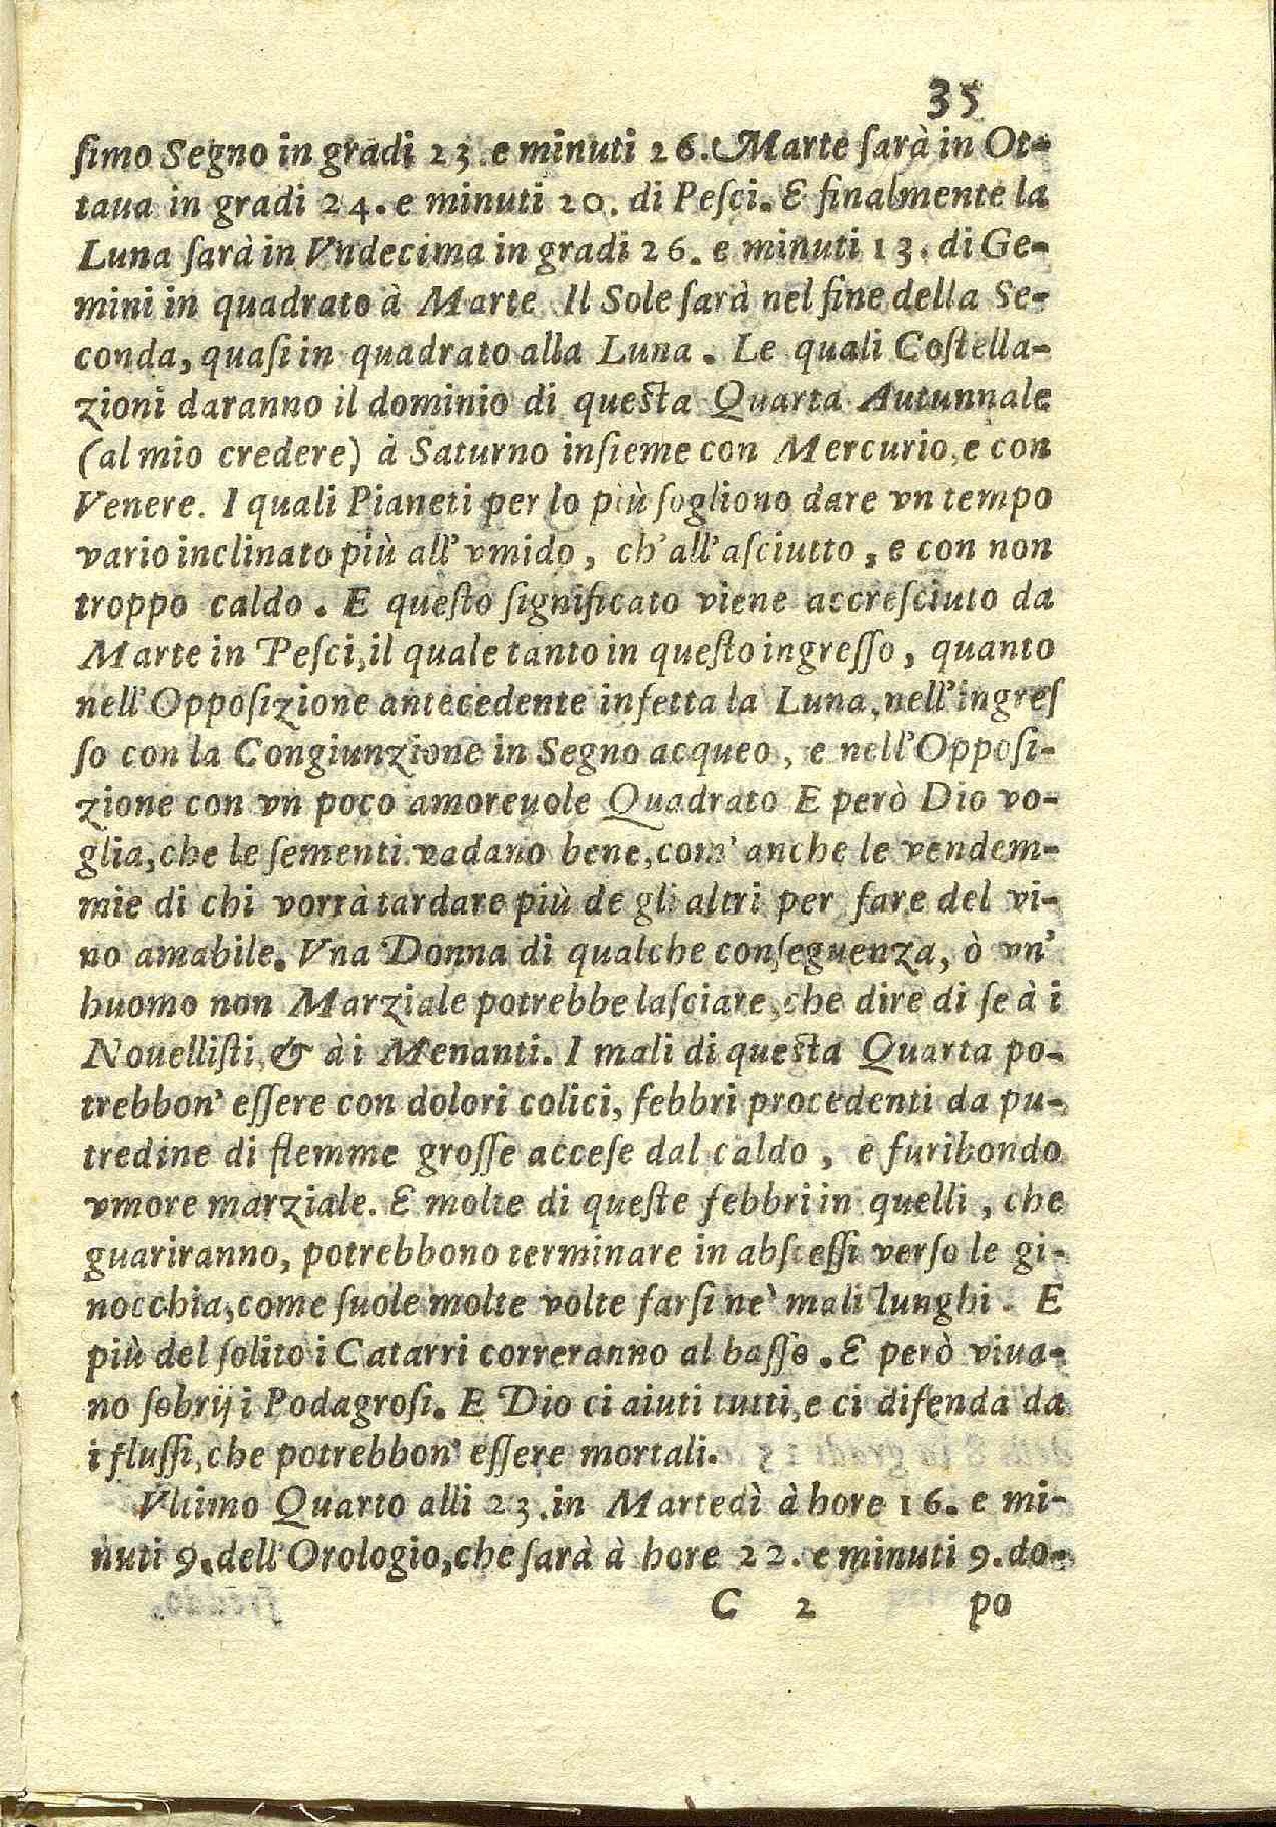 35
ſimo Segno in gradi 23. e minuti 26. Marte ſarà in Ot-
taua in gradi 24. e minuti 20. di Peſci. E finalmente la
Luna ſarà in Vndecima in gradi 26. e minuti 13. di Ge-
mini in quadrato à Marte. Il Sole ſarà nel fine della Se-
conda, quaſi in quadrato alla Luna. Le quali Coſtella-
zioni daranno il dominio di queſta Quarta Autunnale
(al mio credere) à Saturno inſieme con Mercurio, e con
Venere. I quali Pianeti per lo più ſogliono dare vn tempo
vario inclinato più all' vmido, ch'all'aſciutto, e con non
troppo caldo. E queſto ſignificato viene accreſciuto da
Marte in Peſci, il quale tanto in queſto ingreſſo, quanto
nell'Oppoſizione antecedente infetta la Luna, nell'ingreſ
ſo con la Congiunzione in Segno acqueo, e nell'Oppoſi-
zione con vn poco amoreuole Quadrato E però Dio vo-
glia, che le ſementi vadano bene, com' anche le vendem-
mie di chi vorrà tardare più de gli altri per fare del vi-
no amabile. Vna Donna di qualche conſeguenza, ò vn'
huomo non Marziale potrebbe laſciare, che dire di ſe à i
Nouelliſti, & à i Menanti. I mali di queſta Quarta po-
trebbon' eſſere con dolori colici, febbri procedenti da pu-
tredine di flemme groſſe acceſe dal caldo, e furibondo
vmore marziale. E molte di queſte febbri in quelli, che
guariranno, potrebbono terminare in abſceſſi verſo le gi-
nocchia, come ſuole molte volte farſi ne' mali lunghi. E
più del ſolito i Catarri correranno al baſſo. E però viua-
no ſobrij i Podagroſi. E Dio ci aiuti tutti, e ci difenda da
i fluſſi, che potrebbon' eſſere mortali.
Vltimo Quarto alli 23. in Martedì à hore 16. e mi-
nuti 9. dell'Orologio, che ſarà à hore 22. e minuti 9. do-
C 2 po